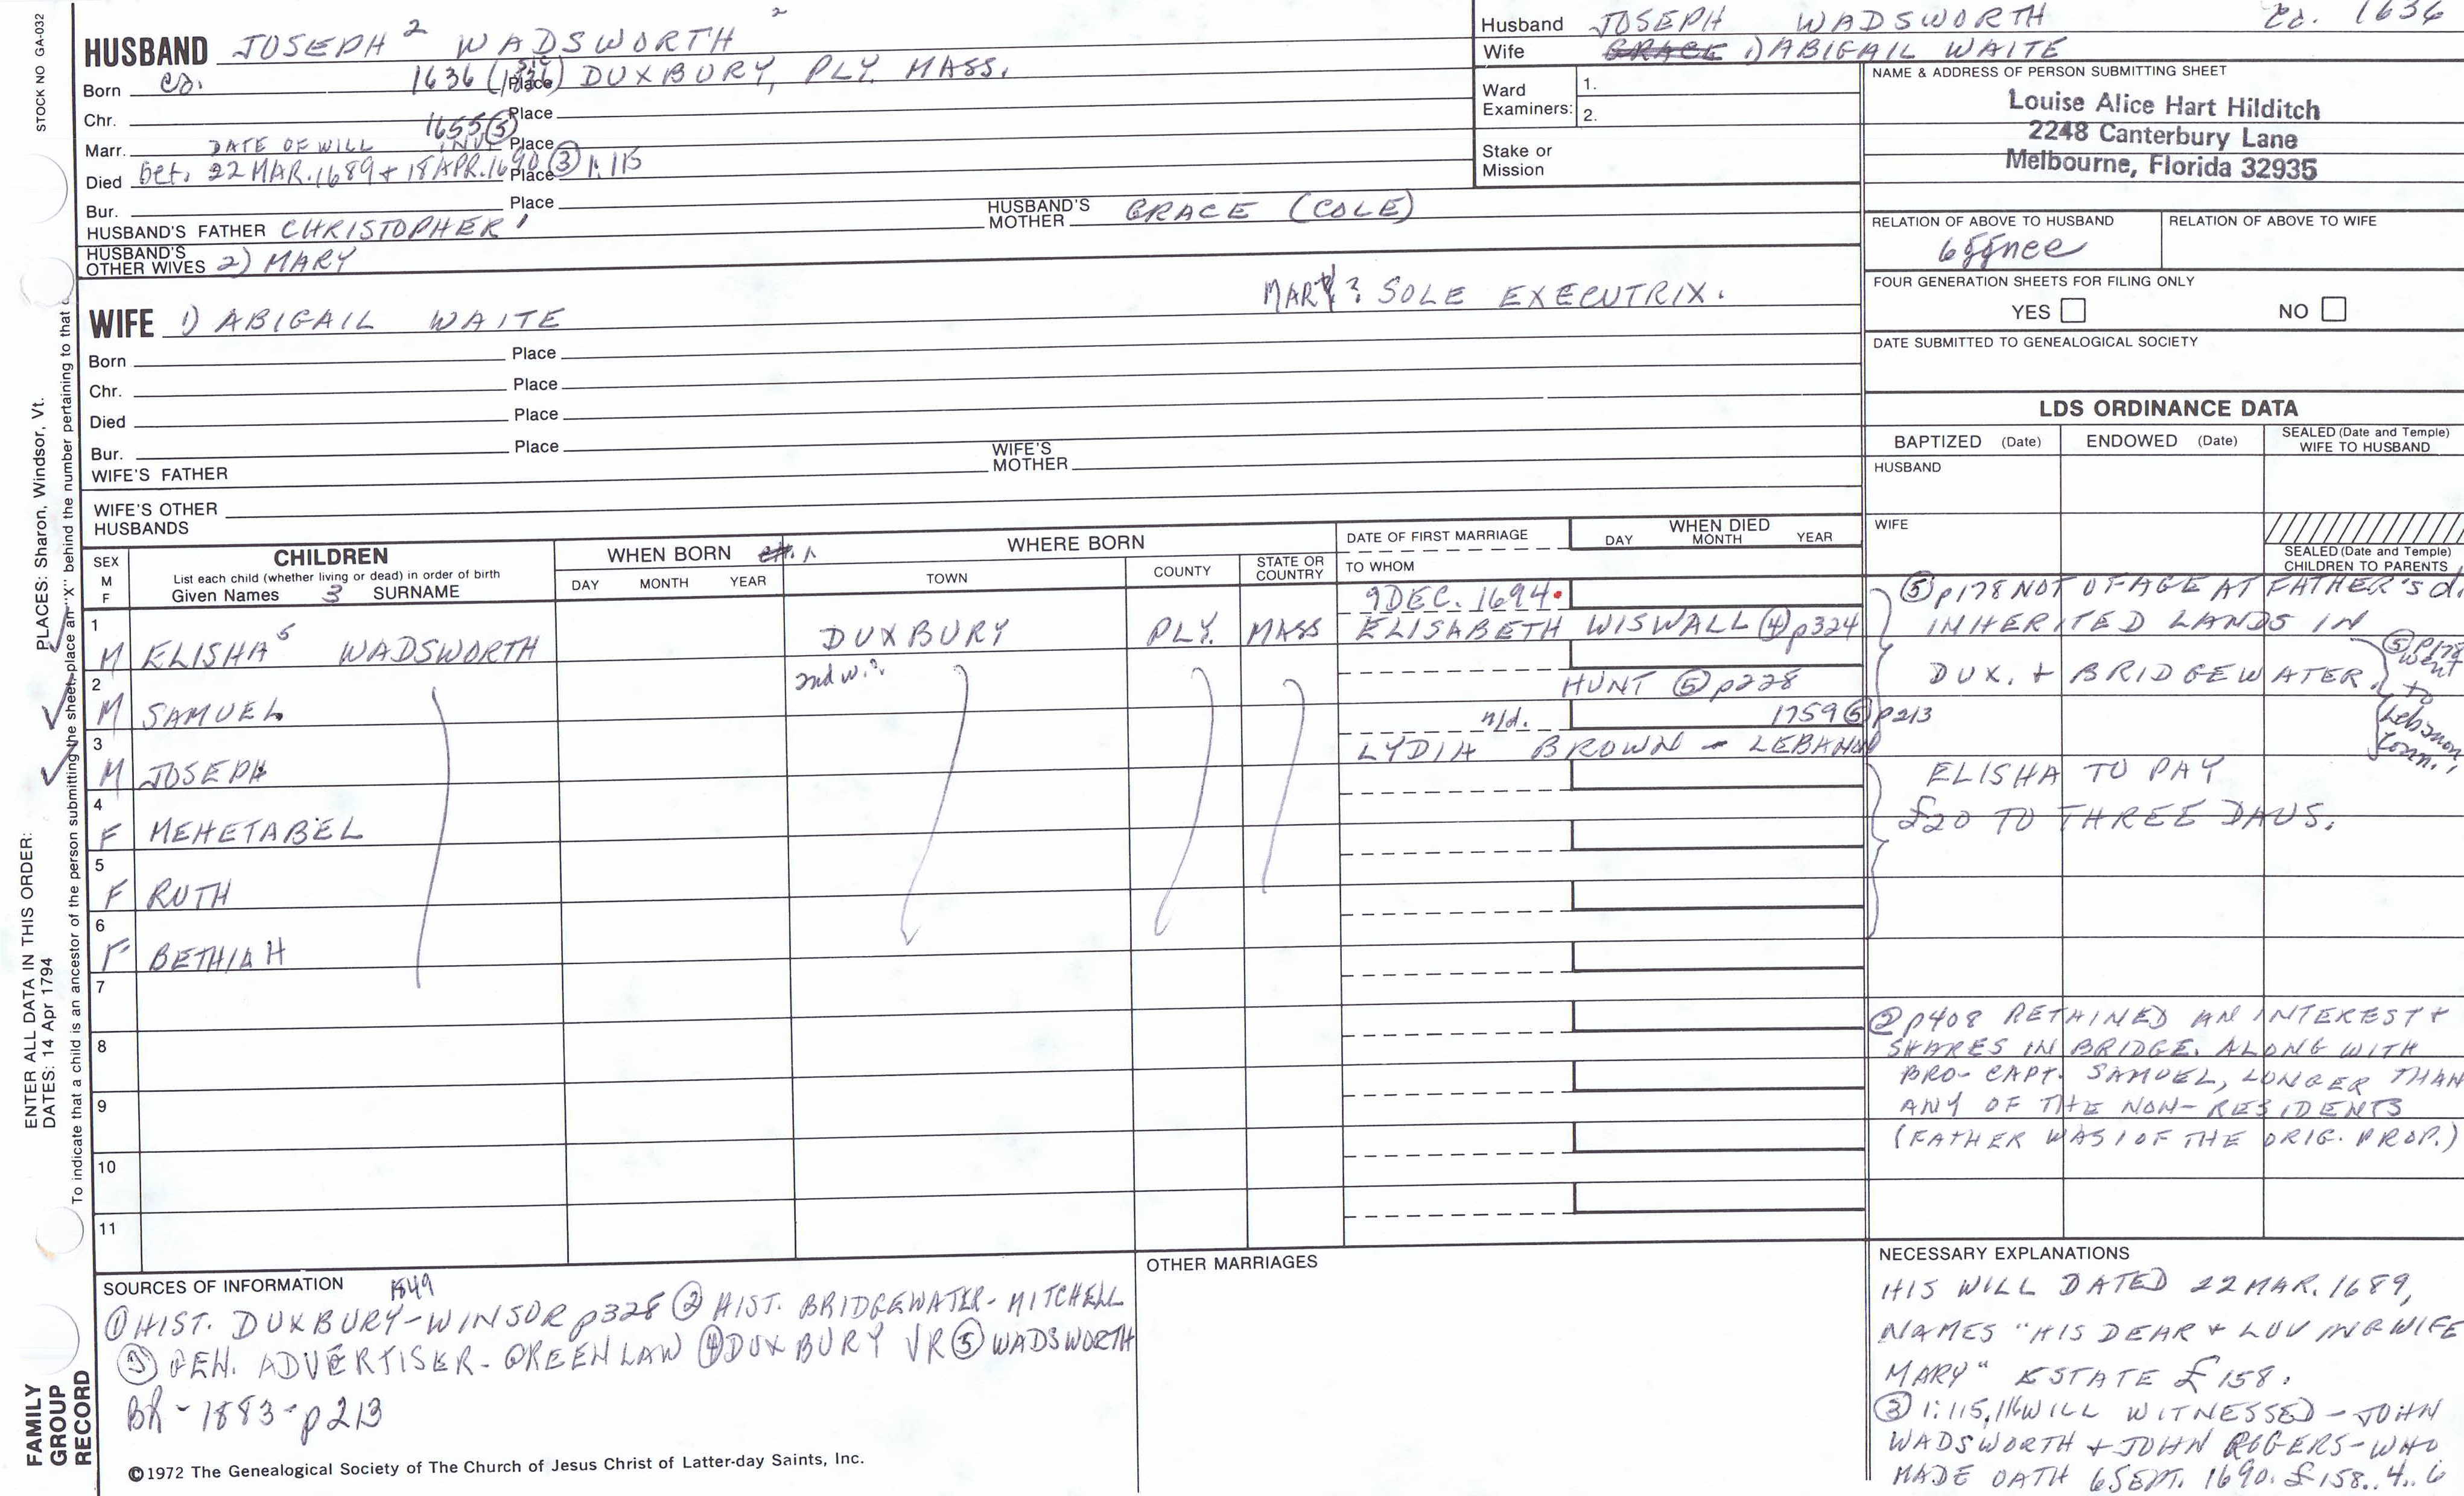 STOCK NO GA-032
HUSBAND JOSEPH 2 WADSWORTH 2
Born ca. 1636 (1636) SIC Place DUXBURY, PLY. MASS.
Chr. Place
Marr. 1655 (5) Place
DATE OF WILL INV.
Died bet. 22 MAR. 1689 + 18 APR. 1690 Place (3) 1:115
Bur. Place
HUSBAND'S FATHER CHRISTOPHER 1 HUSBAND'S MOTHER GRACE (COLE)
HUSBAND'S OTHER WIVES 2) MARY
MARY? SOLE EXECUTRIX.
WIFE 1) ABIGAIL WAITE
Born Place
Chr. Place
Died Place
Bur. Place
WIFE'S FATHER WIFE'S MOTHER
WIFE'S OTHER HUSBANDS
Husband JOSEPH WADSWORTH ca. 1636
Wife GRACE 1) ABIGAIL WAITE
Ward Examiners: 1.
2.
Stake or Mission
NAME & ADDRESS OF PERSON SUBMITTING SHEET
Louise Alice Hart Hilditch
2248 Canterbury Lane
Melbourne, Florida 32935
RELATION OF ABOVE TO HUSBAND RELATION OF ABOVE TO WIFE
FOUR GENERATION SHEETS FOR FILING ONLY
YES NO
DATE SUBMITTED TO GENEALOGICAL SOCIETY
LDS ORDINANCE DATA
BAPTIZED (Date) ENDOWED (Date) SEALED (Date and Temple) WIFE TO HUSBAND
HUSBAND
WIFE
SEALED (Date and Temple) CHILDREN TO PARENTS
SEX M F
CHILDREN
List each child (whether living or dead) in order of birth
Given Names 3 SURNAME
WHEN BORN
DAY MONTH YEAR
WHERE BORN
TOWN COUNTY STATE OR COUNTRY
DATE OF FIRST MARRIAGE
TO WHOM
WHEN DIED
DAY MONTH YEAR
9 DEC. 1694
1 M ELISHA 5 WADSWORTH DUXBURY PLY. MASS ELISABETH WISWALL (4) p324
2nd w.?
2 M SAMUEL HUNT (5) p228
n/d. 1759 (5) p213
3 M JOSEPH LYDIA BROWN - LEBANON
4 F MEHETABEL
5 F RUTH
6 F BETHIAH
7
8
9
10
11
(5) p178 NOT OF AGE AT FATHER'S d.
INHERITED LANDS IN
DUX. + BRIDGEWATER.
(5) p178 went to Lebanon Conn.,
ELISHA TO PAY
£20 TO THREE DAUS.
(2) p408 RETAINED AN INTEREST +
SHARES IN BRIDGE. ALONG WITH
BRO- CAPT. SAMUEL, LONGER THAN
ANY OF THE NON-RESIDENTS
(FATHER WAS 1 OF THE ORIG. PROP.)
SOURCES OF INFORMATION 1849
(1) HIST. DUXBURY-WINSOR p328 (2) HIST. BRIDGEWATER-MITCHELL
(3) GEN. ADVERTISER-GREENLAW (4) DUXBURY VR (5) WADSWORTH
BK-1883-p213
©1972 The Genealogical Society of The Church of Jesus Christ of Latter-day Saints, Inc.
OTHER MARRIAGES
NECESSARY EXPLANATIONS
HIS WILL DATED 22 MAR. 1689,
NAMES "HIS DEAR + LUVING WIFE
MARY" ESTATE £158.
(3) 1:115,116 WILL WITNESSED - JOHN
WADSWORTH + JOHN ROGERS - WHO
MADE OATH 6 SEPT. 1690. £158..4..6
ENTER ALL DATA IN THIS ORDER:
DATES: 14 Apr 1794
PLACES: Sharon, Windsor, Vt.
To indicate that a child is an ancestor of the person submitting the sheet, place an "X" behind the number pertaining to that
FAMILY GROUP RECORD